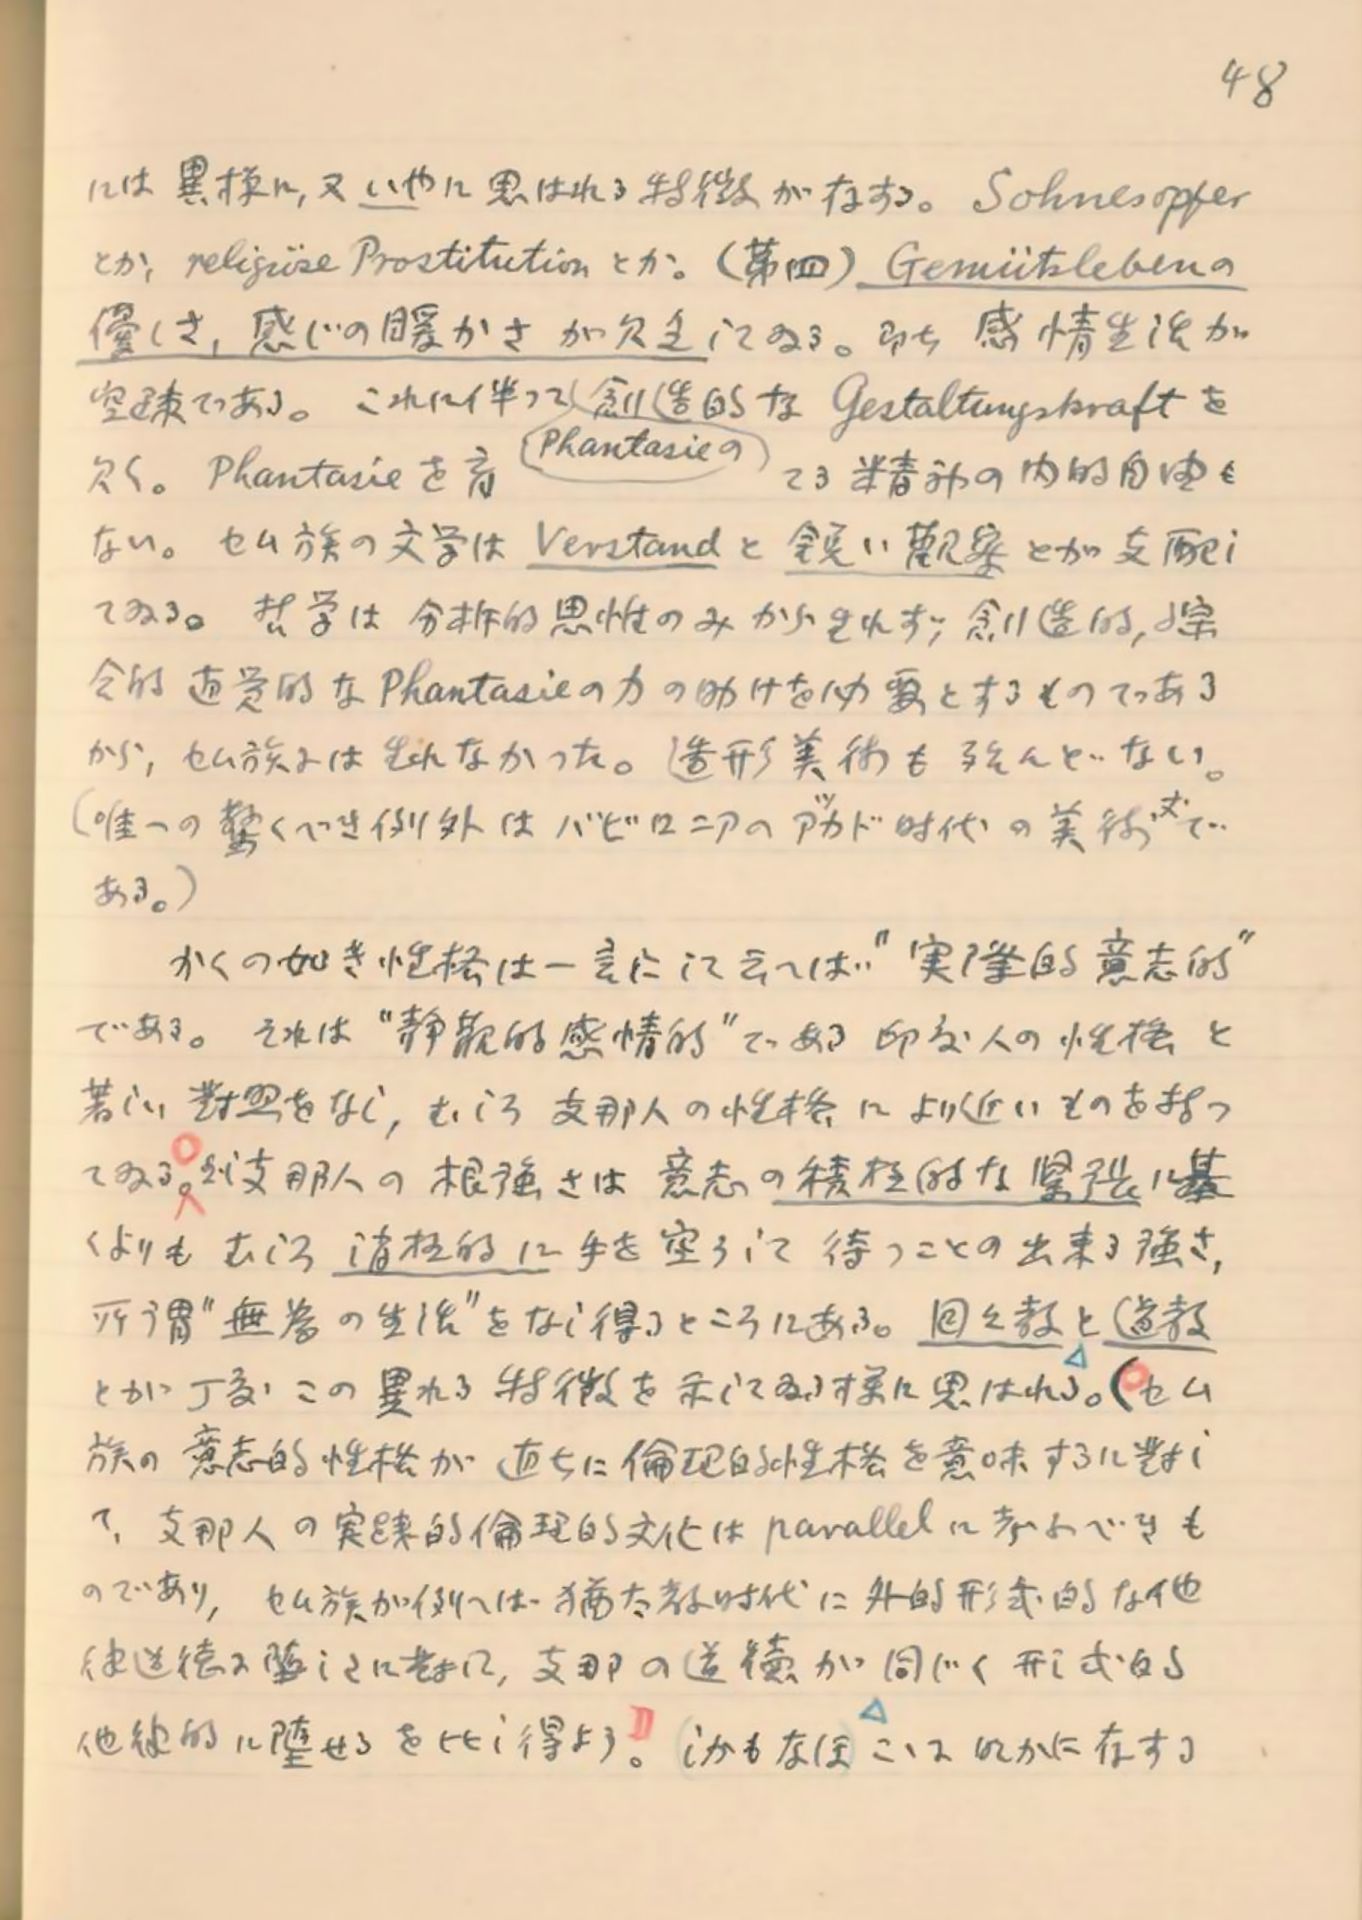 48
には異様に,又いやに思はれる特徴が存する。Sohnesopfer
とか, religiöse Prostitutionとか。(第四) Gemütslebenの
優しさ,感じの暖かさが欠乏してゐる。即ち感情生活が
空疎である。これに伴つて創造的なGestaltungskraftを
Phantasieの
欠く。Phantasieを育てる精神の内的自由も
ない。セム族の文学はVerstandと鋭い觀察とが支配し
てゐる。哲学は分析的思惟のみから生れず,創造的,綜
合的直覚的なPhantasieの力の助けを必要とするものである
から,セム族には生れなかつた。造形美術も殆んどない。
(唯一の驚くべき例外はバビロニアのアッカド時代の美術丈で
ある。)
かくの如き性格は一言にして云へば"実際的意志的"
である。それは"静観的感情的"である印度人の性格と
著しい對照をなし,むしろ支那人の性格により近いものを持つ
てゐる。が支那人の根強さは意志の積極的な緊張に基
くよりもむしろ消極的に手を空うして待つことの出来る強さ,
所謂"無為の生活"をなし得るところにある。回々教と道教
とが丁度この異れる特徴を示してゐる様に思はれる。(セム
族の意志的性格が直ちに倫理的性格を意味するに對し
て,支那人の実践的倫理的文化はparallelに考ふべきも
のであり,セム族が例へば猶太教時代に外的形式的な他
律道徳に墮したに對して,支那の道徳が同じく形式的
他律的に墮せるを比し得よう。(しかもなほこゝに明かに存する